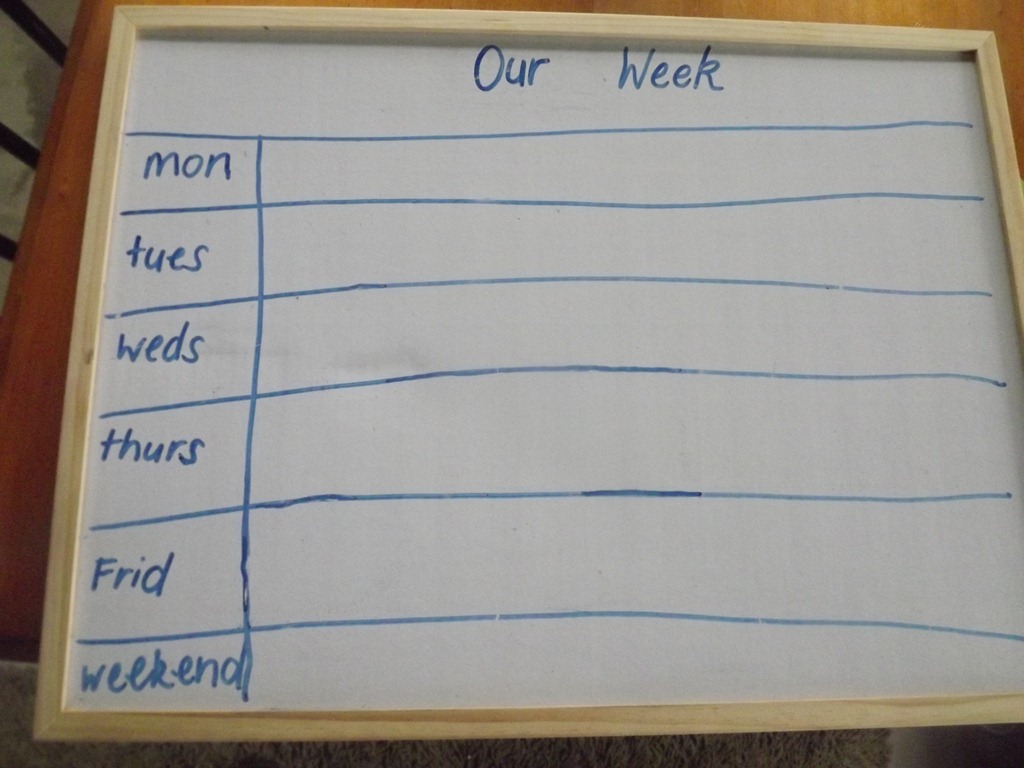 Our Week
mon
tues
weds
thurs
Frid
weekend